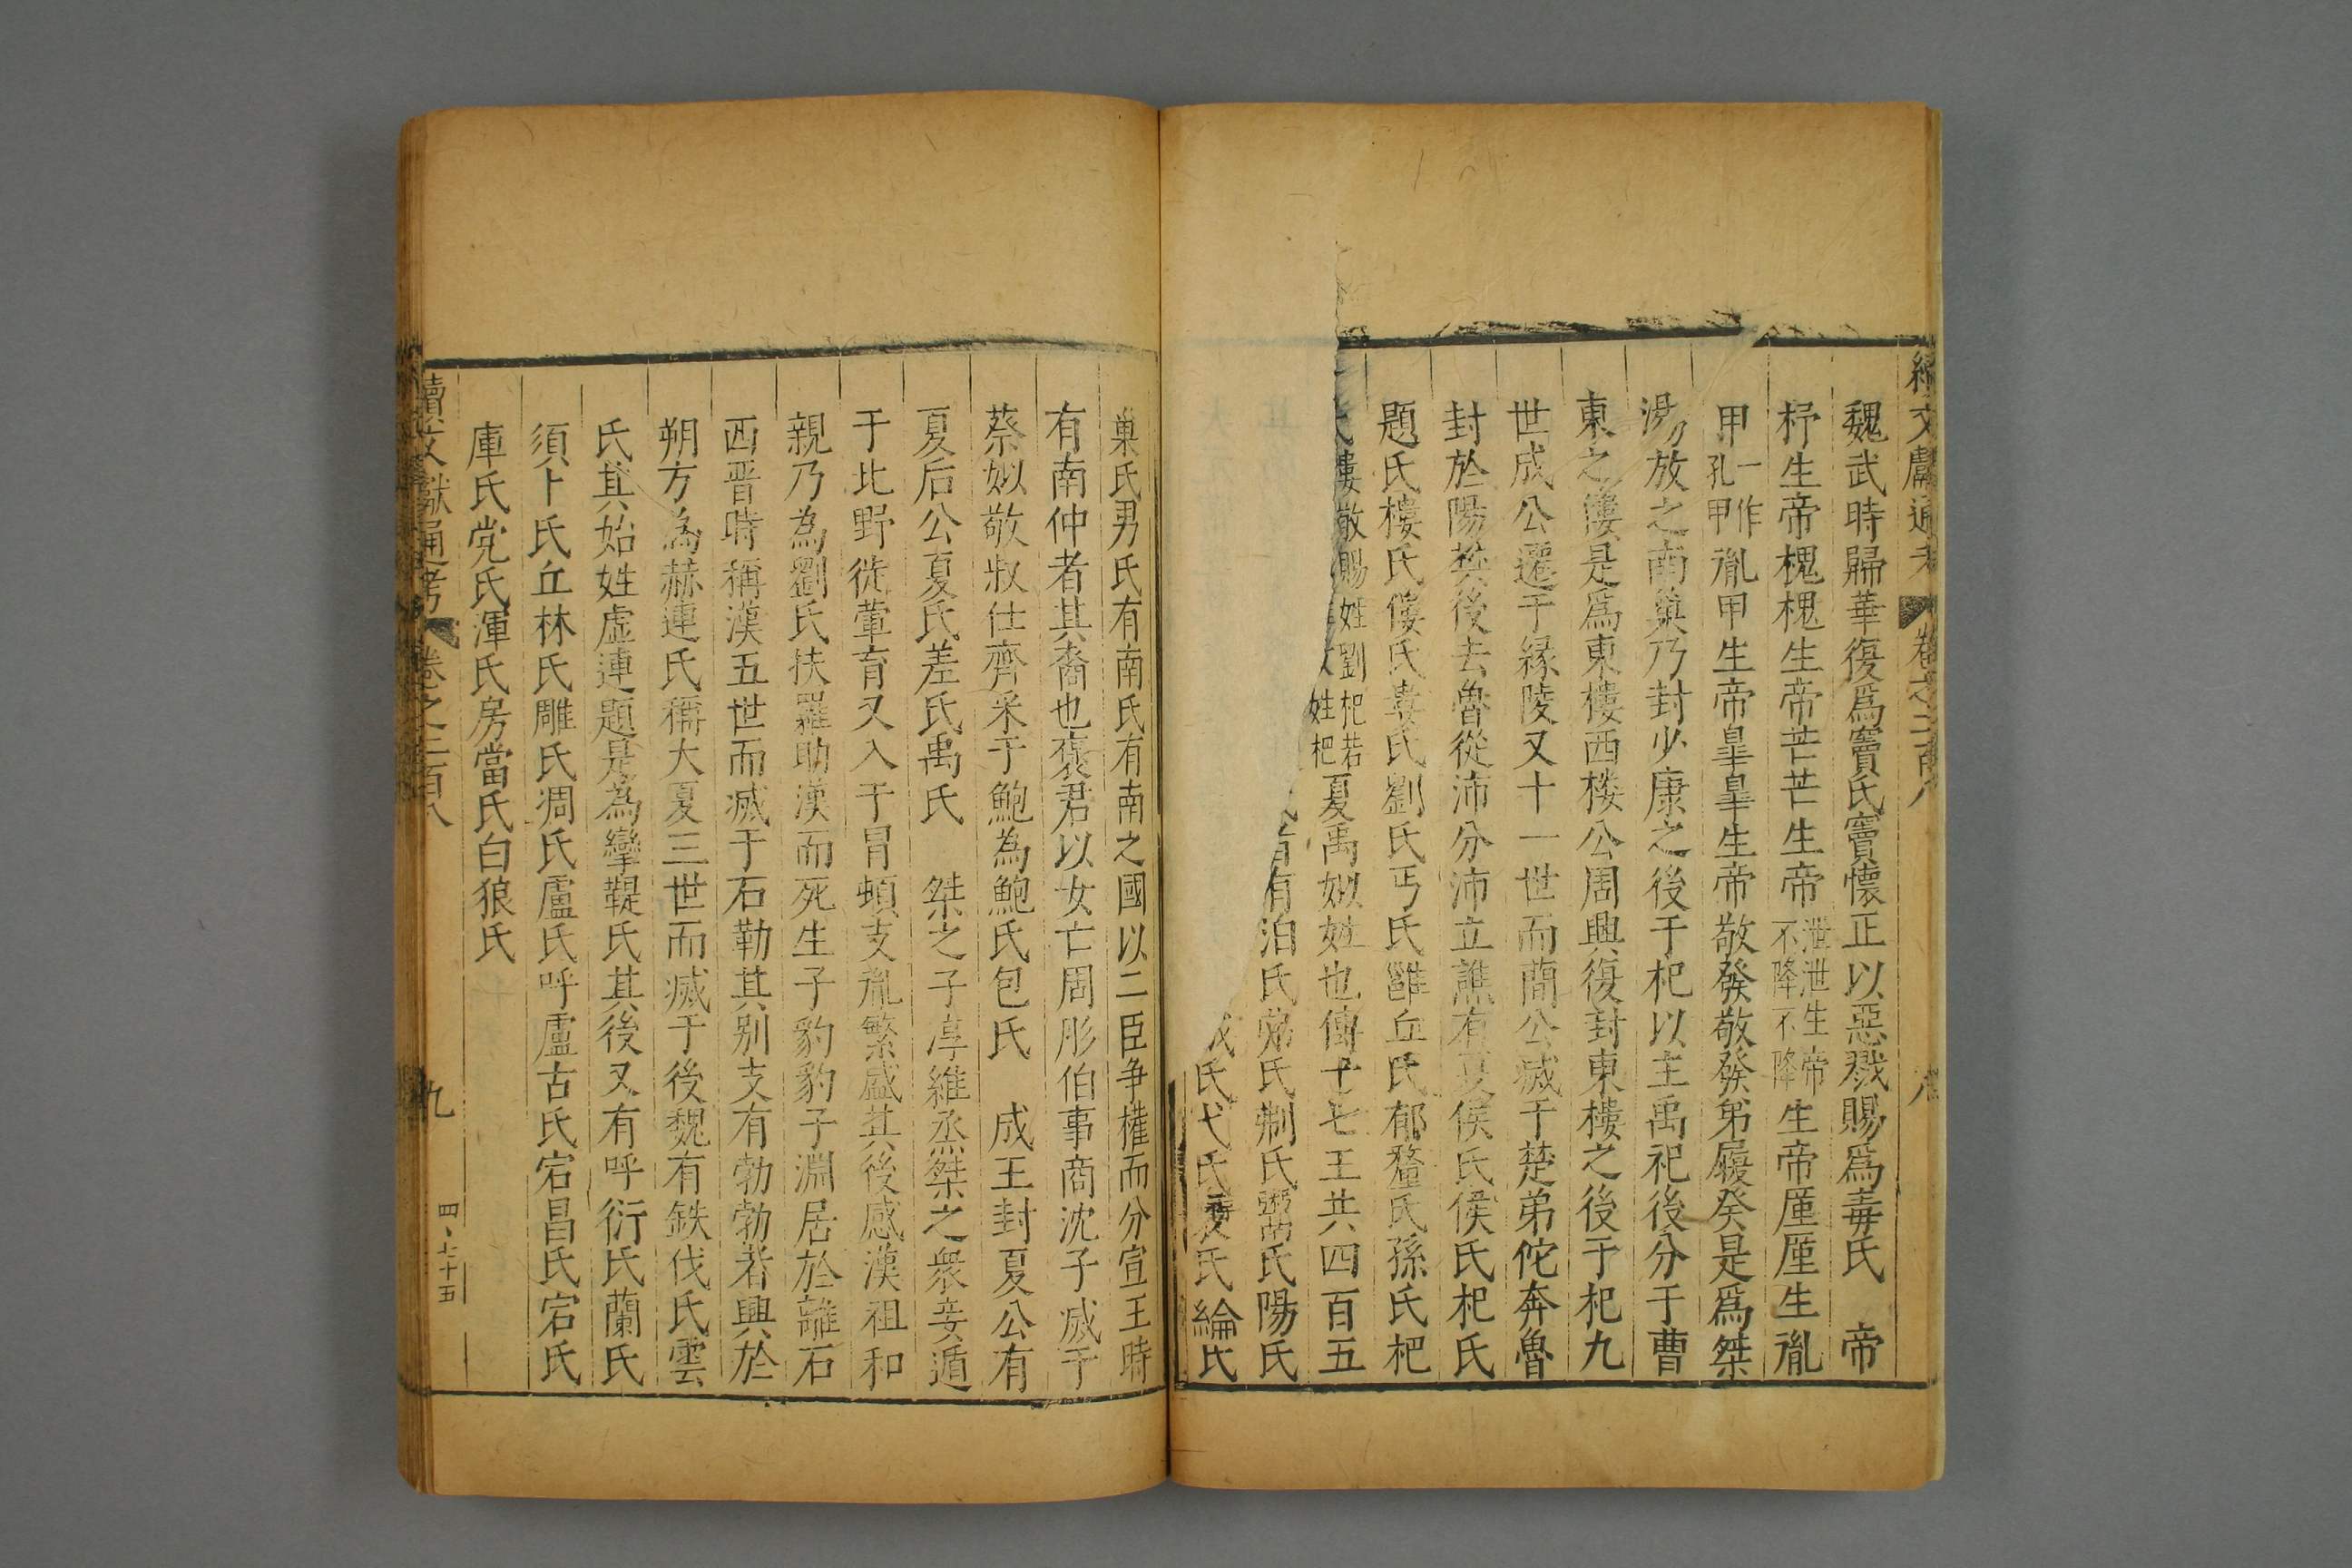 續文獻通考 卷之二百八 八
魏武時歸華復爲竇氏竇懷正以惡戮賜爲毒氏 帝
杼生帝槐槐生帝芒芒生帝泄泄生帝不降不降生帝厪厪生胤
甲一作孔甲胤甲生帝臯臯生帝敬發敬發弟履癸是爲桀
湯放之南巢乃封少康之後于杞以主禹祀後分于曹
東之僂是爲東樓西楼公周興復封東樓之後于杞九
世成公遷于緣陵又十一世而簡公滅于楚弟佗奔魯
封於陽樊後去魯從沛分沛立譙有夏侯氏侯氏杞氏
題氏樓氏僂氏婁氏劉氏丐氏雝丘氏郁釐氏孫氏杷
氏婁敬賜姓劉杞若姓杷夏禹姒姓也傳十七王共四百五
有泊氏弗氏㓡氏氏陽氏
氏弋氏氏綸氏
巢氏男氏有南氏有南之國以二臣争權而分宣王時
有南仲者其裔也褒君以女亡周彤伯事商沈子滅于
蔡姒敬叔仕齊采于鮑為鮑氏包氏 成王封夏公有
夏后公夏氏差氏禹氏 桀之子淳維烝桀之衆妾遁
于北野徙葷育又入于冒頓支胤繁盛其後感漢祖和
親乃為劉氏扶羅助漢而死生子豹豹子淵居於離石
西晋時稱漢五世而滅于石勒其别支有勃勃者興於
朔方為赫連氏稱大夏三世而滅于後魏有鉄伐氏雲
氏其始姓虚連題是為攣鞮氏其後又有呼衍氏蘭氏
須卜氏丘林氏雕氏凋氏盧氏呼盧古氏宕昌氏宕氏
庫氏党氏渾氏房當氏白狼氏
續文獻通考 卷之二百八 九
四、七十五